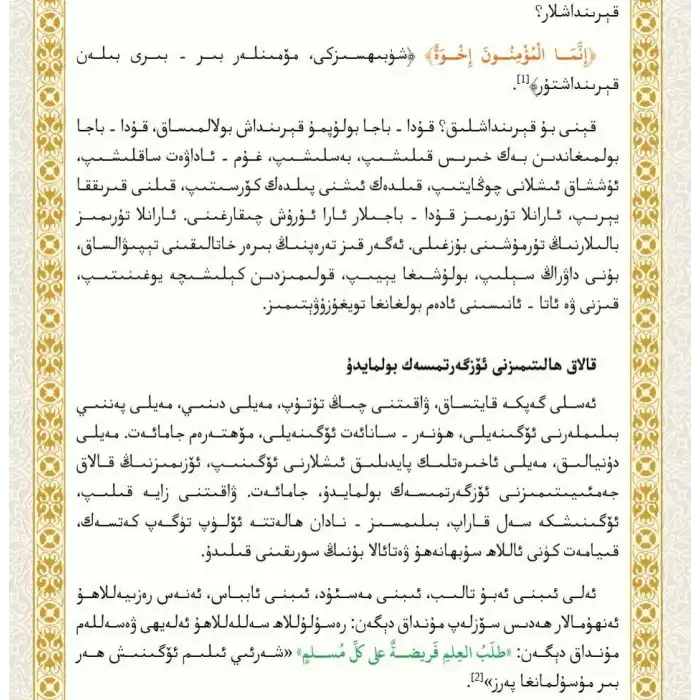 قېرىنداشلار؟
﴿إِنَّمَـا الْمُؤْمِنُـونَ إِخْـوَةٌ﴾ ﴿شۈبھىسىـزكى، مۆمىنلەر بىـر - بىـرى بىلـەن
قېرىنداشتۇر﴾[1].
قېنى بۇ قېرىنداشلىـق؟ قـۇدا - باجـا بولۇپمۇ قېرىنداش بولالمىساق، قـۇدا - باجـا
بولمىغاندىـن بـەك خىرىـس قىلىشىـپ، بەسلىشىـپ، غـۇم - ئـاداۋەت ساقلىشىـپ،
ئۇششاق ئىشلانى چوڭايتىـپ، قىلـدەك ئىشنى پىلـدەك كۆرسىتىـپ، قىلنى قىرىققا
يېرىـپ، ئارانلا تۇرىمىـز قـۇدا - باجىـلار ئارا ئـۇرۇش چىقارغىنـى. ئارانلا تۇرىمىـز
بالىـلارنىـڭ تۇرمۇشىنى بۇزغىلى. ئەگەر قىـز تەرەپنىـڭ بىـرەر خاتالىقىنى تېپىۋالسـاق،
بۇنى داۋراڭ سېلىـپ، بولۇشىغا يېيىـپ، قولىمىزدىـن كېلىشىچـە يوغىنىتىـپ،
قىزنى ۋە ئاتا - ئانىسىنى ئادەم بولغانغا تويغۇزۇۋېتىمىز.
قالاق ھالىتىمىزنى ئۆزگەرتمىسەك بولمايدۇ
ئەسلى گەپكـە قايتساق، ۋاقىتنى چىـڭ تۇتـۇپ، مەيلى دىنىي، مەيلى پەننىي
بىلىملەرنى ئۆگىنەيلى، ھۈنـەر - سـانائەت ئۆگىنەيلى، مۆھتـەرەم جامائـەت. مەيلى
دۇنيالىـق، مەيلى ئاخىرەتلىـك پايدىلىـق ئىشلارنى ئۆگىنىـپ، ئۆزىمىزنىـڭ قالاق
جەمئىيىتىمىزنى ئۆزگەرتمىسەك بولمايـدۇ، جامائـەت. ۋاقىتنى زايـە قىلىـپ،
ئۆگىنىشكە سـەل قاراپ، بىلىمسىـز - نادان ھالەتتـە ئۆلـۈپ تۈگـەپ كەتسەك،
قىيامەت كۈنى ئاللاھ سۇبھانەھۇ ۋەتائالا بۇنىڭ سورىقىنى قىلىدۇ.
ئەلى ئىبنى ئەبـۇ تالىـب، ئىبنى مەسئـۇد، ئىبنى ئابباس، ئەنـەس رەزىيەللاھـۇ
ئەنھۇمالار ھەدىس سۆزلەپ مۇنداق دېگەن: رەسۇلۇللاھ سەللەللاھۇ ئەلەيھى ۋەسەللەم
مۇنداق دېگەن: «طلَبُ العِلمِ فَريضـةٌ على كلِّ مُسلـمٍ» «شـەرئىي ئىلىـم ئۆگىنىش ھەر
بىر مۇسۇلمانغا پەرز»[2].